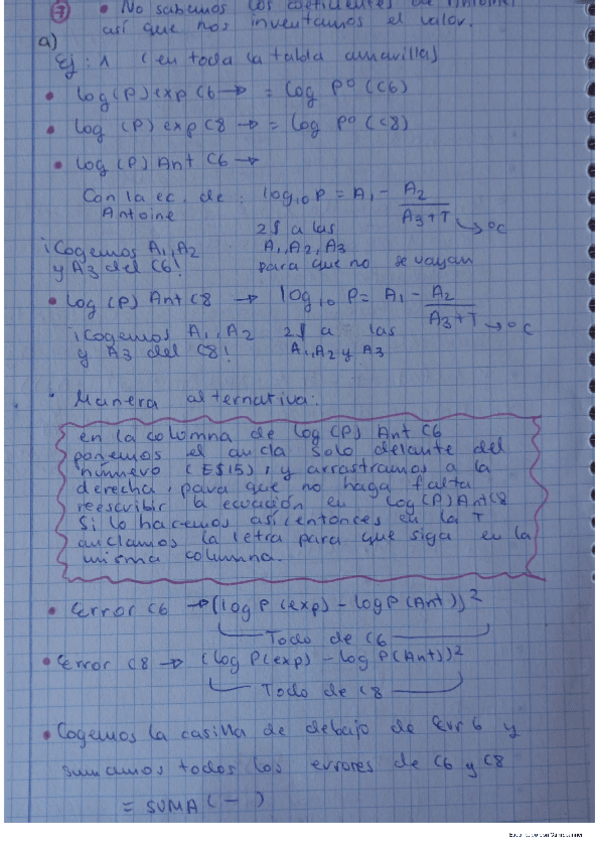 ⑦ • No sabemos los coeficientes de Antoine,
así que nos inventamos el valor.
a)
Ej: 1 (en toda la tabla amarilla)
• log(P) exp C6 → = log Pº (C6)
• log (P) exp C8 → = log Pº (C8)
• log(P) Ant C6 →
Con la ec. de : log₁₀ P = A₁ - A₂ / (A₃+T) → ºC
Antoine
2$ a las
¡Cogemos A₁, A₂ A₁, A₂, A₃
y A₃ del C6! para que no se vayan
• log(P) Ant C8 → log₁₀ P = A₁ - A₂ / (A₃+T) → ºC
¡Cogemos A₁, A₂ 2$ a las
y A₃ del C8! A₁, A₂ y A₃
• Manera alternativa:
en la columna de log(P) Ant C6
ponemos el ancla solo delante del
número (E$15), y arrastramos a la
derecha, para que no haga falta
reescribir la ecuación en log(P) Ant C8
Si lo hacemos así entonces en la T
anclamos la letra para que siga en la
misma columna.
• Error C6 → (log P (exp) - log P (Ant))²
Todo de C6
• Error C8 → (log P(exp) - log P(Ant))²
Todo de C8
• Cogemos la casilla de debajo de Err 6 y
sumamos todos los errores de C6 y C8
= SUMA ( — )